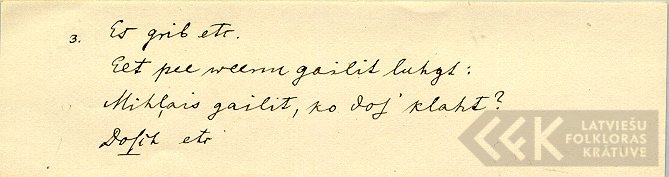 3. Es grib etc.
Eet pee weenu gailit luhgt:
Mihļais gailit, ko dos' klaht?
Dosch etc
LATVIEŠU
FOLKLORAS
KRĀTUVE